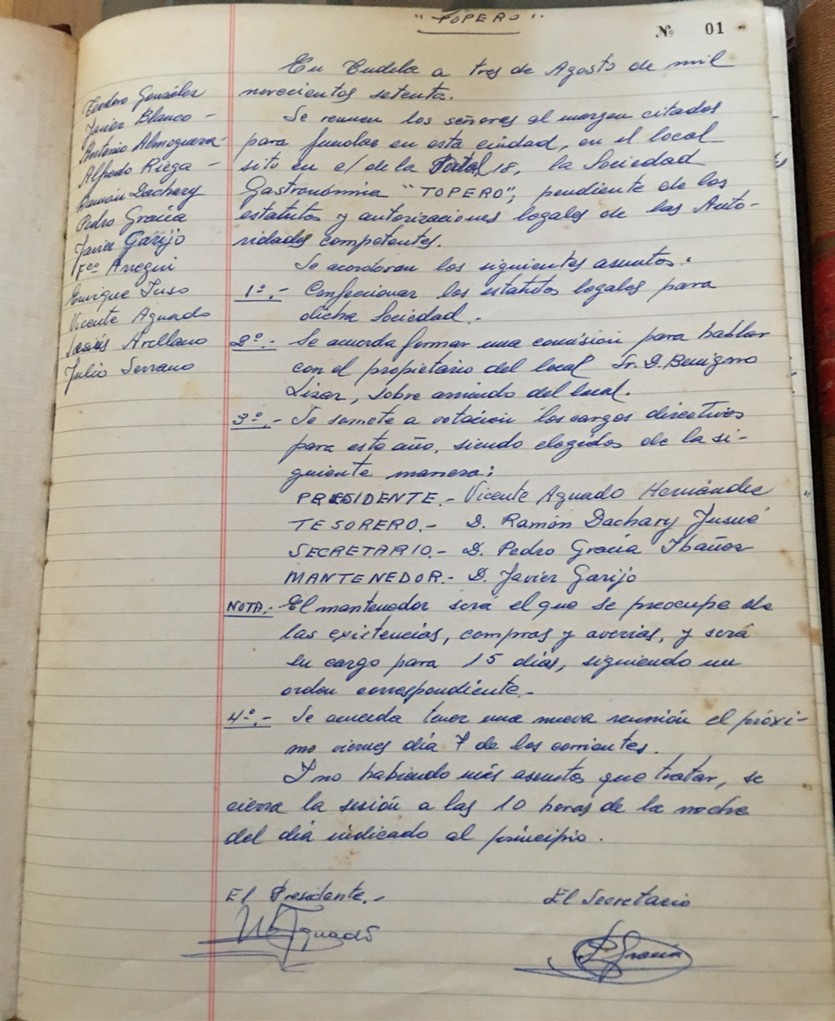 "TOPERO".
Nº 01
Teodoro González
Javier Blanco -
Antonio Almoguera -
Alfredo Riega -
Ramón Dachary
Pedro Gracia
Javier Garijo
Fco Anegui
Enrique Iuso
Vicente Aguado
Jesús Arellano
Julio Serrano
En Tudela a tres de Agosto de mil
novecientos setenta.
Se reunen los señores al margen citados
para fundar en esta ciudad, en el local
sito en c/ de la 18, la Sociedad
Gastronómia "TOPERO", pendiente de los
estatutos y autorizaciones legales de las Auto-
ridades competentes.
Se acordaron los siguientes asuntos:
1º.- Confecionar los estatutos legales para
dicha Sociedad.-
2º.- Se acuerda formar una comisión para hablar
con el propietario del local Sr. D. Benigno
, sobre arriendo del local.
3º.- Se somete a votación los cargos directivos
para este año, siendo elegidos de la si-
guiente manera:
PRESIDENTE.- Vicente Aguado Hernández
TESORERO.- D. Ramón Dachary Jusué
SECRETARIO.- D. Pedro Gracia Ibáñez
MANTENEDOR.- D. Javier Garijo
NOTA.- El mantenedor será el que se preocupe de
las existencias, compras y averias, y será
su cargo para 15 dias, siguiendo un
orden correspondiente.-
4º.- Se acuerda tener una nueva reunión el próxi-
mo viernes día 7 de los corrientes.
I no habiendo más asuntos que tratar, se
cierra la sesión a las 10 horas de la noche
del día indicado al principio.
El Presidente.-
El Secretario
Aguado
P. Gracia